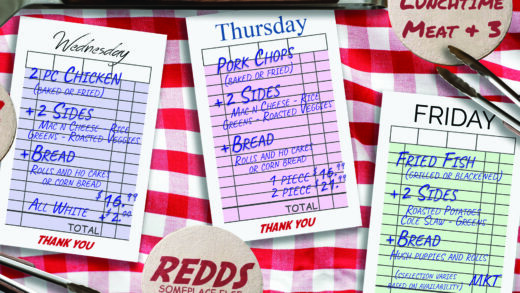 LUNCHTIME
MEAT + 3
Wednesday
2 PC CHICKEN
(BAKED OR FRIED)
+ 2 SIDES
MAC N CHEESE - RICE
GREENS - ROASTED VEGGIES
+ BREAD
ROLLS AND HO CAKES
OR CORN BREAD
$16.99
ALL WHITE + $2.00
TOTAL
THANK YOU
Thursday
PORK CHOPS
(BAKED OR FRIED)
+ 2 SIDES
MAC N CHEESE - RICE
GREENS - ROASTED VEGGIES
+ BREAD
ROLLS AND HO CAKES
OR CORN BREAD
1 PIECE $16.99
2 PIECE $21.99
TOTAL
THANK YOU
FRIDAY
FRIED FISH
(GRILLED OR BLACKENED)
+ 2 SIDES
ROASTED POTATOES
COLE SLAW - GREENS
+ BREAD
HUSH PUPPIES AND ROLLS
(SELECTION VARIES
BASED ON AVAILABILITY)
MKT
REDDS